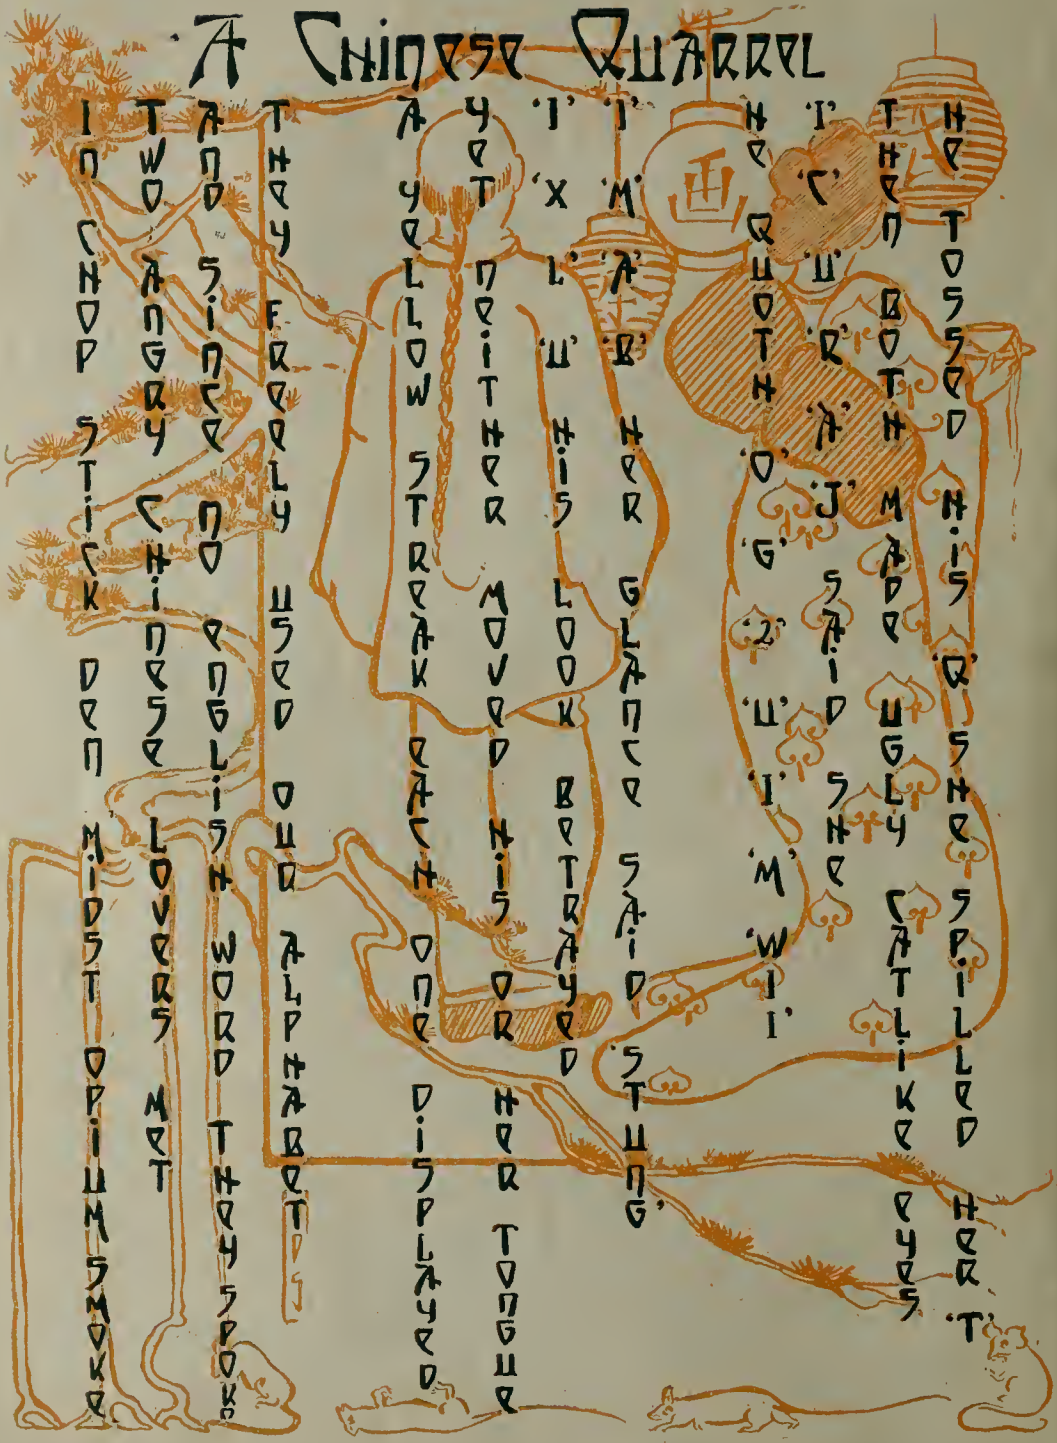 A Chinese Quarrel
In Chop Stick Den Midst Opium Smoke
Two Angry Chinese Lovers Met
And Since No English Word They Spoke
They Freely Used Our Alphabet
DS
A Yellow Streak Each One Displayed
Yet Neither Moved His Or Her Tongue
'I' 'X L' 'U' His Look Betrayed
'I' 'M' 'A' 'B' Her Glance Said 'Stung'
He Quoth 'O' 'G' '2' 'U' 'I' 'M' 'W I I'
'I' 'C' 'U' 'R' 'A' 'J' Said She
Then Both Made Ugly Catlike Eyes
He Tossed His 'Q' She Spilled Her 'T'